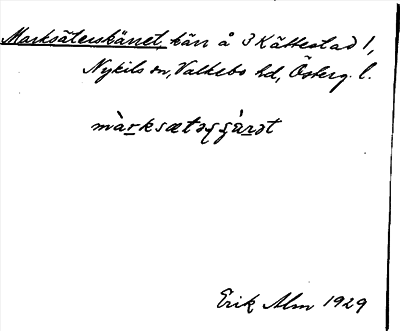 Marksäterskärret, kärr å 3 Kättestad 1,
Nykils sn, Valkebo hd, Österg. l.
màrksætəʂɕä́rət
Erik Alm 1929